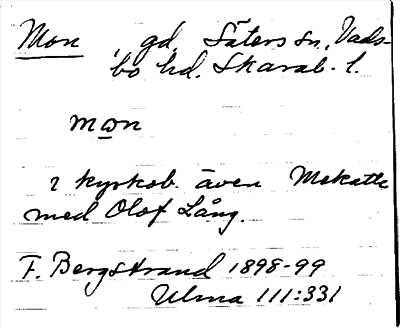 Mon, gd, Säters sn, Vads-
bo hd. Skarab. l.
mon
i kyrkob. även Mekatte
med Olof Lång.
F. Bergstrand 1898-99
Ulma 111:331